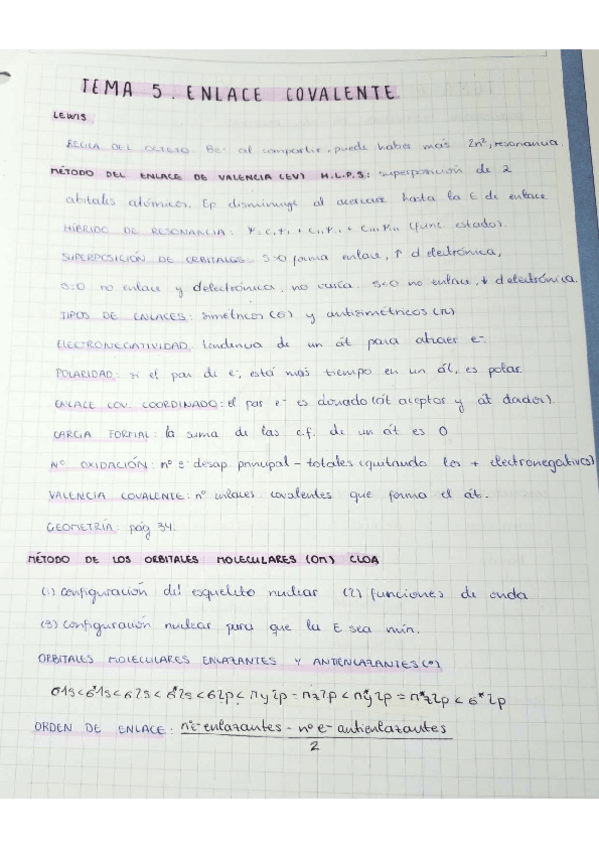 TEMA 5. ENLACE COVALENTE
LEWIS
REGLA DEL OCTETO. 8e⁻ al compartir, puede haber más 2n², resonancia.
MÉTODO DEL ENLACE DE VALENCIA (EV) H.L.P.S: superposición de 2
orbitales atómicos. Ep disminuye al acercarse hasta la E de enlace.
HÍBRIDO DE RESONANCIA: (func estado).
SUPERPOSICIÓN DE ORBITALES: S>0 forma enlace, ↑ d electrónica,
S=0 no enlace y d electrónica, no varía. S<0 no enlace, ↓ d electrónica.
TIPOS DE ENLACES: simétricos (σ) y antisimétricos (π)
ELECTRONEGATIVIDAD tendencia de un át para atraer e⁻.
POLARIDAD: si el par de e⁻ está más tiempo en un át, es polar.
ENLACE COV. COORDINADO: el par e⁻ es donado (át aceptor y át dador).
CARGA FORMAL: la suma de las c.f. de un át es 0
Nº OXIDACIÓN: nº e⁻ desap. principal - totales (quitando los + electronegativos)
VALENCIA COVALENTE: nº enlaces covalentes que forma el át.
GEOMETRÍA: pág 34.
MÉTODO DE LOS ORBITALES MOLECULARES (OM) CLOA
(1) Configuración del esqueleto nuclear (2) funciones de onda
(3) Configuración nuclear para que la E sea mín.
ORBITALES MOLECULARES ENLAZANTES Y ANTIENLAZANTES (*)
σ1s < σ*1s < σ2s < σ*2s < σ2p < πy2p = πz2p < π*y2p = π*z2p < σ*2p
ORDEN DE ENLACE: nº e⁻ enlazantes - nº e⁻ antienlazantes
2